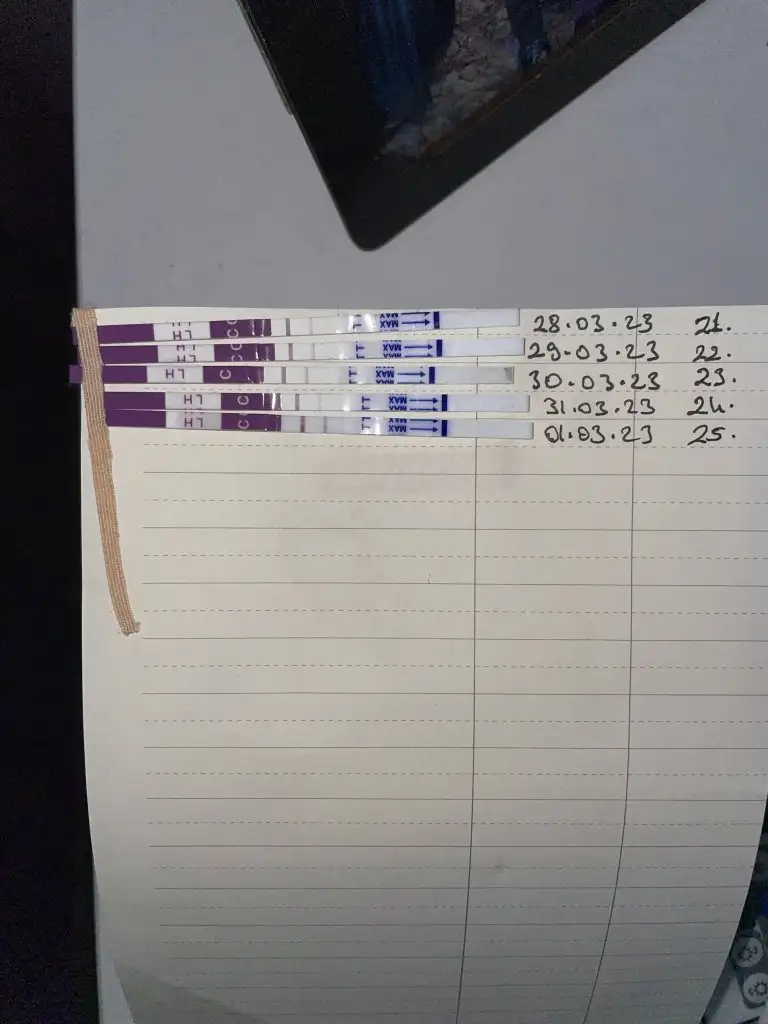 LH C MAX 28.03.23 21.
LH C MAX 29.03.23 22.
LH C MAX 30.03.23 23.
LH C MAX 31.03.23 24.
LH C MAX 01.03.23 25.